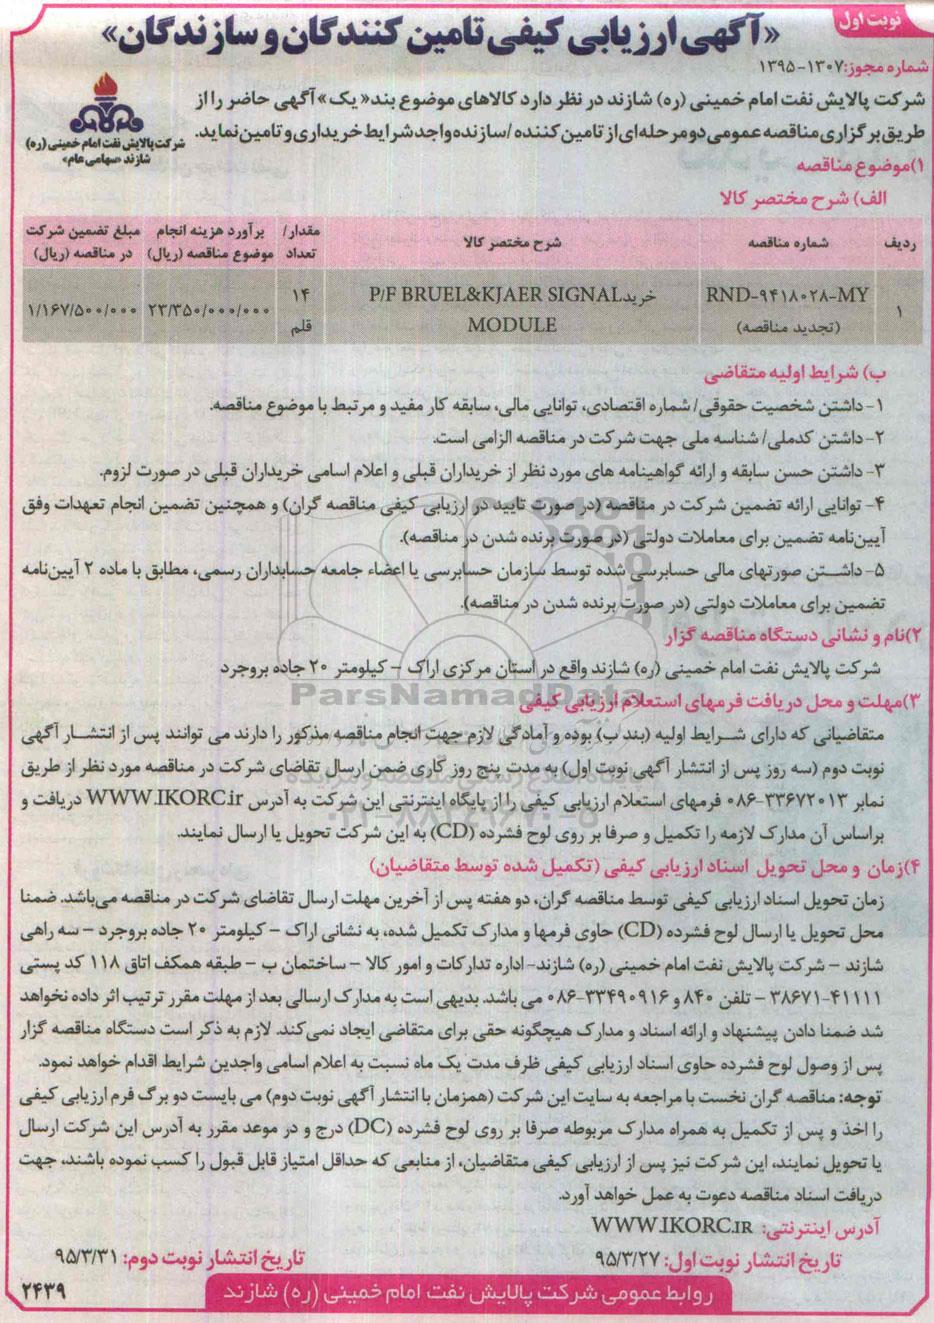 نوبت اول
«آگهی ارزیابی کیفی تامین کنندگان و سازندگان»
شماره مجوز:۱۳۰۷-۱۳۹۵
شرکت پالایش نفت امام خمینی (ره)
شازند «سهامی عام»
شرکت پالایش نفت امام خمینی (ره) شازند در نظر دارد کالاهای موضوع بند «یک» آگهی حاضر را از
طریق برگزاری مناقصه عمومی دو مرحله‌ای از تامین کننده /سازنده واجد شرایط خریداری و تامین نماید.
۱)موضوع مناقصه
الف) شرح مختصر کالا
ردیف
شماره مناقصه
شرح مختصر کالا
مقدار/
تعداد
برآورد هزینه انجام
موضوع مناقصه (ریال)
مبلغ تضمین شرکت
در مناقصه (ریال)
۱
RND-۹۴۱۸۰۲۸-MY
(تجدید مناقصه)
خرید P/F BRUEL&KJAER SIGNAL
MODULE
۱۴
قلم
۲۳/۳۵۰/۰۰۰/۰۰۰
۱/۱۶۷/۵۰۰/۰۰۰
ب) شرایط اولیه متقاضی
۱- داشتن شخصیت حقوقی/ شماره اقتصادی، توانایی مالی، سابقه کار مفید و مرتبط با موضوع مناقصه.
۲- داشتن کدملی/ شناسه ملی جهت شرکت در مناقصه الزامی است.
۳- داشتن حسن سابقه و ارائه گواهینامه های مورد نظر از خریداران قبلی و اعلام اسامی خریداران قبلی در صورت لزوم.
۴- توانایی ارائه تضمین شرکت در مناقصه (در صورت تایید در ارزیابی کیفی مناقصه گران) و همچنین تضمین انجام تعهدات وفق
آیین‌نامه تضمین برای معاملات دولتی (در صورت برنده شدن در مناقصه).
۵- داشتن صورتهای مالی حسابرسی شده توسط سازمان حسابرسی یا اعضاء جامعه حسابداران رسمی، مطابق با ماده ۲ آیین‌نامه
تضمین برای معاملات دولتی (در صورت برنده شدن در مناقصه).
۲)نام و نشانی دستگاه مناقصه گزار
شرکت پالایش نفت امام خمینی (ره) شازند واقع در استان مرکزی اراک – کیلومتر ۲۰ جاده بروجرد
ParsNamadData
۳)مهلت و محل دریافت فرمهای استعلام ارزیابی کیفی
متقاضیانی که دارای شرایط اولیه (بند ب) بوده و آمادگی لازم جهت انجام مناقصه مذکور را دارند می توانند پس از انتشار آگهی
نوبت دوم (سه روز پس از انتشار آگهی نوبت اول) به مدت پنج روز کاری ضمن ارسال تقاضای شرکت در مناقصه مورد نظر از طریق
نمابر ۳۳۶۷۲۰۱۳-۰۸۶ فرمهای استعلام ارزیابی کیفی را از پایگاه اینترنتی این شرکت به آدرس WWW.IKORC.ir دریافت و
براساس آن مدارک لازمه را تکمیل و صرفا بر روی لوح فشرده (CD) به این شرکت تحویل یا ارسال نمایند.
۴)زمان و محل تحویل اسناد ارزیابی کیفی (تکمیل شده توسط متقاضیان)
زمان تحویل اسناد ارزیابی کیفی توسط مناقصه گران، دو هفته پس از آخرین مهلت ارسال تقاضای شرکت در مناقصه می‌باشد. ضمنا
محل تحویل یا ارسال لوح فشرده (CD) حاوی فرمها و مدارک تکمیل شده، به نشانی اراک – کیلومتر ۲۰ جاده بروجرد – سه راهی
شازند – شرکت پالایش نفت امام خمینی (ره) شازند- اداره تدارکات و امور کالا – ساختمان ب – طبقه همکف اتاق ۱۱۸ کد پستی
۴۱۱۱۱-۳۸۶۷۱ – تلفن ۸۴۰ و ۳۳۴۹۰۹۱۶-۰۸۶ می باشد. بدیهی است به مدارک ارسالی بعد از مهلت مقرر ترتیب اثر داده نخواهد
شد ضمنا دادن پیشنهاد و ارائه اسناد و مدارک هیچگونه حقی برای متقاضی ایجاد نمی‌کند. لازم به ذکر است دستگاه مناقصه گزار
پس از وصول لوح فشرده حاوی اسناد ارزیابی کیفی ظرف مدت یک ماه نسبت به اعلام اسامی واجدین شرایط اقدام خواهد نمود.
توجه: مناقصه گران نخست با مراجعه به سایت این شرکت (همزمان با انتشار آگهی نوبت دوم) می بایست دو برگ فرم ارزیابی کیفی
را اخذ و پس از تکمیل به همراه مدارک مربوطه صرفا بر روی لوح فشرده (DC) درج و در موعد مقرر به آدرس این شرکت ارسال
یا تحویل نمایند، این شرکت نیز پس از ارزیابی کیفی متقاضیان، از منابعی که حداقل امتیاز قابل قبول را کسب نموده باشند، جهت
دریافت اسناد مناقصه دعوت به عمل خواهد آورد.
آدرس اینترنتی: WWW.IKORC.IR
تاریخ انتشار نوبت اول: ۹۵/۳/۲۷
تاریخ انتشار نوبت دوم: ۹۵/۳/۳۱
روابط عمومی شرکت پالایش نفت امام خمینی (ره) شازند
۲۴۳۹